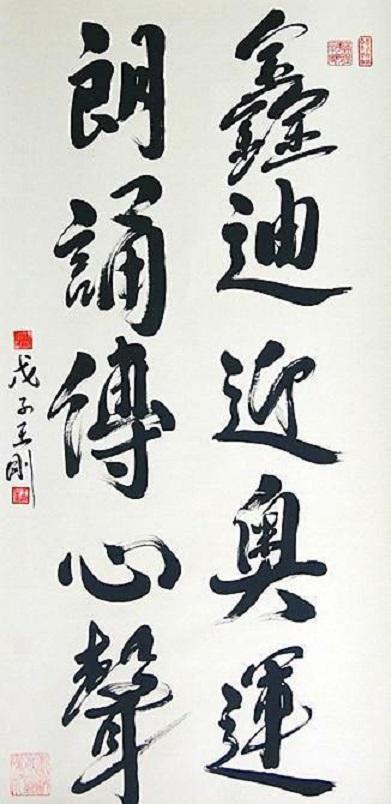 鑫迪迎奧運
朗誦傳心聲
戊子王剛